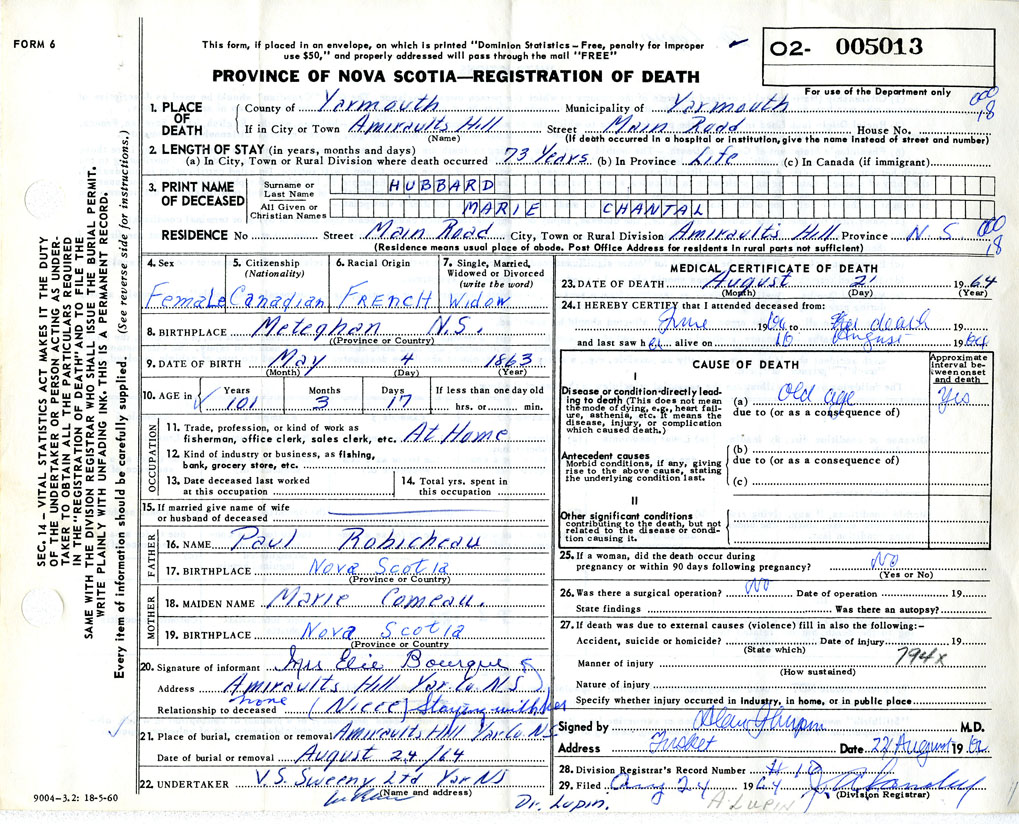 FORM 6
This form, if placed in an envelope, on which is printed "Dominion Statistics – Free, penalty for improper
use $50," and properly addressed will pass through the mail "FREE"
O2- 005013
For use of the Department only
PROVINCE OF NOVA SCOTIA—REGISTRATION OF DEATH
SEC. 14 – VITAL STATISTICS ACT MAKES IT THE DUTY
OF THE UNDERTAKER OR PERSON ACTING AS UNDER-
TAKER TO OBTAIN ALL THE PARTICULARS REQUIRED
IN THE "REGISTRATION OF DEATH" AND TO FILE THE
SAME WITH THE DIVISION REGISTRAR WHO SHALL ISSUE THE BURIAL PERMIT.
WRITE PLAINLY WITH UNFADING INK. THIS IS A PERMANENT RECORD.
Every item of information should be carefully supplied. (See reverse side for instructions.)
1. PLACE OF DEATH
County of Yarmouth Municipality of Yarmouth
18
If in City or Town Amiraults Hill Street Main Road House No.
(Name) (If death occurred in a hospital or institution, give the name instead of street and number)
2. LENGTH OF STAY (in years, months and days)
(a) In City, Town or Rural Division where death occurred 73 Years (b) In Province Life (c) In Canada (if immigrant)
3. PRINT NAME OF DECEASED
Surname or Last Name HUBBARD
All Given or Christian Names MARIE CHANTAL
RESIDENCE No Street Main Road City, Town or Rural Division Amirault's Hill Province N S
18
(Residence means usual place of abode. Post Office Address for residents in rural parts not sufficient)
4. Sex Female
5. Citizenship (Nationality) Canadian
6. Racial Origin FRENCH
7. Single, Married, Widowed or Divorced (write the word) Widow
8. BIRTHPLACE Meteghan N.S.
(Province or Country)
9. DATE OF BIRTH May 4 1863
(Month) (Day) (Year)
10. AGE in Years 101 Months 3 Days 17 If less than one day old hrs. or min.
OCCUPATION
11. Trade, profession, or kind of work as
fisherman, office clerk, sales clerk, etc. At Home
12. Kind of industry or business, as fishing,
bank, grocery store, etc.
13. Date deceased last worked
at this occupation
14. Total yrs. spent in
this occupation
15. If married give name of wife
or husband of deceased
FATHER
16. NAME Paul Robicheau
17. BIRTHPLACE Nova Scotia
(Province or Country)
MOTHER
18. MAIDEN NAME Marie Comeau.
19. BIRTHPLACE Nova Scotia
(Province or Country)
20. Signature of informant Mrs Elie Bourque
Address Amiraults Hill Yar Co NS
none
Relationship to deceased (Niece) Staying with her
21. Place of burial, cremation or removal Amiraults Hill Yar Co NS
Date of burial or removal August 24/64
22. UNDERTAKER V.S. Sweeny Ltd Yar NS
(Name and address)
9004-3.2: 18-5-60
MEDICAL CERTIFICATE OF DEATH
23. DATE OF DEATH August 21 1964
(Month) (Day) (Year)
24. I HEREBY CERTIFY that I attended deceased from:
June 19 64 to her death 19
and last saw her alive on 16 August 1964
CAUSE OF DEATH
Approximate interval between onset and death
I
Disease or condition directly lead-
ing to death (This does not mean
the mode of dying, e.g., heart fail-
ure, asthenia, etc. It means the
disease, injury, or complication
which caused death.)
(a) Old age Yis
due to (or as a consequence of)
Antecedent causes
Morbid conditions, if any, giving
rise to the above cause, stating
the underlying condition last.
(b)
due to (or as a consequence of)
(c)
II
Other significant conditions
contributing to the death, but not
related to the disease or condi-
tion causing it.
25. If a woman, did the death occur during
pregnancy or within 90 days following pregnancy? No
(Yes or No)
26. Was there a surgical operation? No Date of operation 19
State findings Was there an autopsy?
27. If death was due to external causes (violence) fill in also the following:-
Accident, suicide or homicide? Date of injury 19
(State which)
794x
Manner of injury
(How sustained)
Nature of injury
Specify whether injury occurred in industry, in home, or in public place
Signed by M.D.
Address Tusket Date 22 August 19 64
28. Division Registrar's Record Number # 18
29. Filed Aug 24 1964
(Division Registrar)
Dr. Lupin. A LUPIN